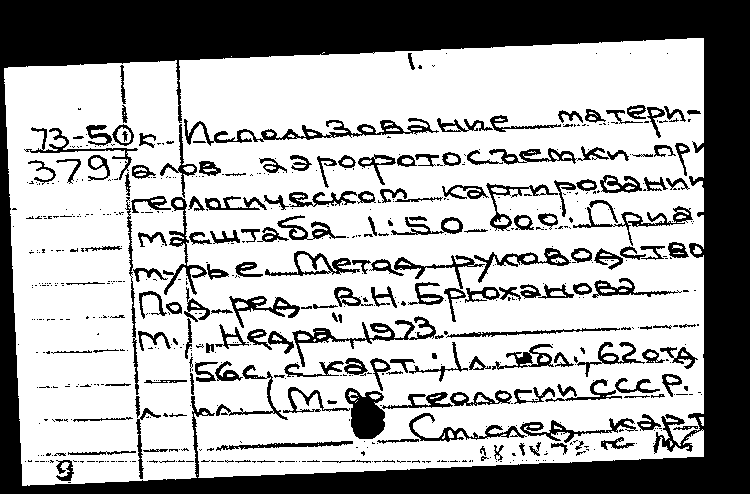 1.
73-50к Использование матери-
3797 алов аэрофотосъемки при
геологическом картировании
масштаба 1:50 000. Приа-
мурье. Метод. руководство
Под ред. В.Н. Брюханова
М., "Недра", 1973.
56с. с карт.; 1 л. табл.; 62 отд.
л. ил. (М-во геологии СССР.
См. след. карт
28.IV.73
9